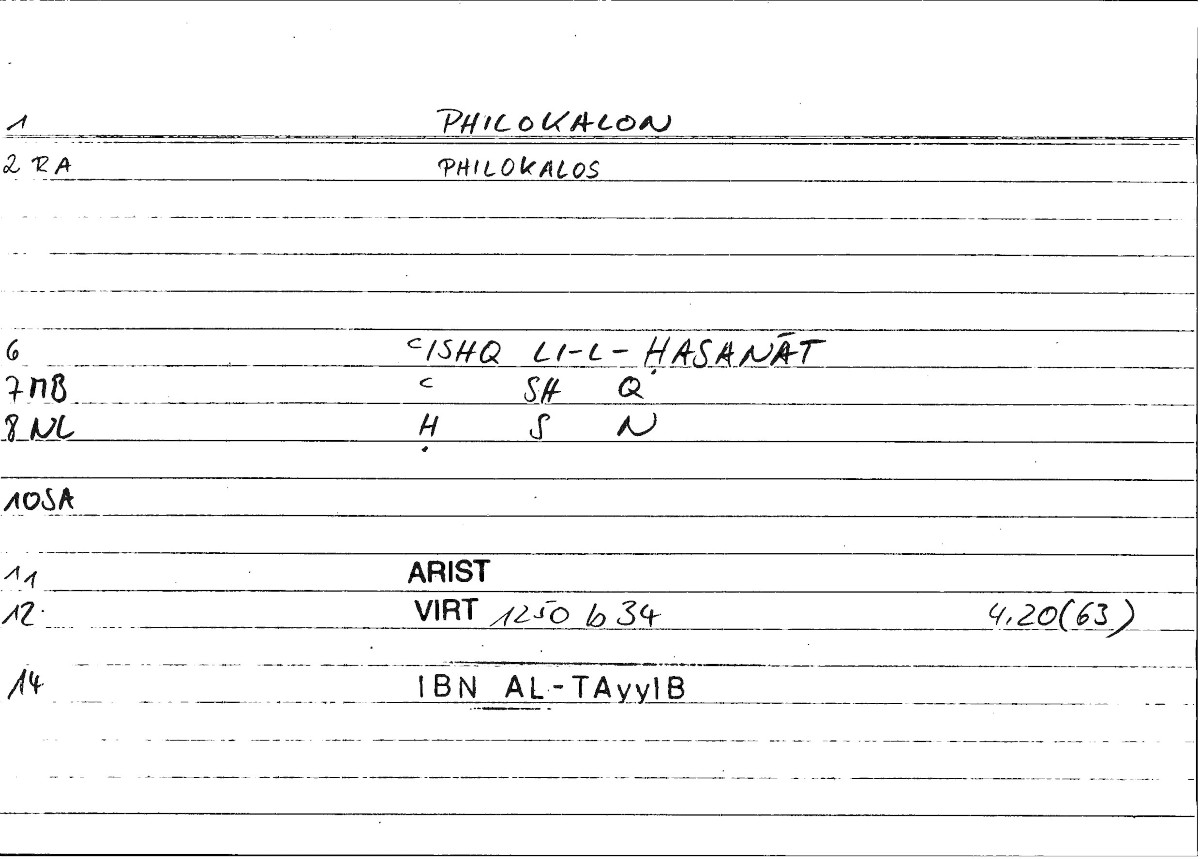 1 PHILOKALON
2 RA PHILOKALOS
6 ᶜISHQ LI-L-ḤASANĀT
7 MB ᶜ SH Q
8 NL Ḥ S N
10 SA
11 ARIST
12 VIRT 1250 b 34 4.20(63)
14 IBN AL-TAyyIB